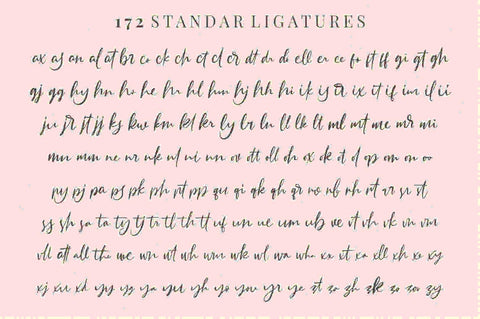 172 STANDAR LIGATURES
ax as an al at br co ck ch ct cl cr dt du di ell er ce fo ft ff gi gt gh
gj gg hy hn ho he hr hl hm hj hh hi ik is ix it if im il ii
ju jr jt jj ks kw km kl kr ly br ln ll lk lt ml mt me mr mi
mn mm ne nr nk nl ni nn ov tt oll oh ox ok ot ol op om on oo
py pj pa ps pk ph pt pp qu qi qk qh qr ro nb rh rt rr sr st
ss sh sa ta tg tj tr tl th tt uf un ue um ub ve vt vh vk vn vm
vll att all the we wn wt wh wm wk wl wa who xx xt xa xll xh xe xy
xj xu xd yy ys ya yu yh yo you yr ye zt zo zh zk zo za zy